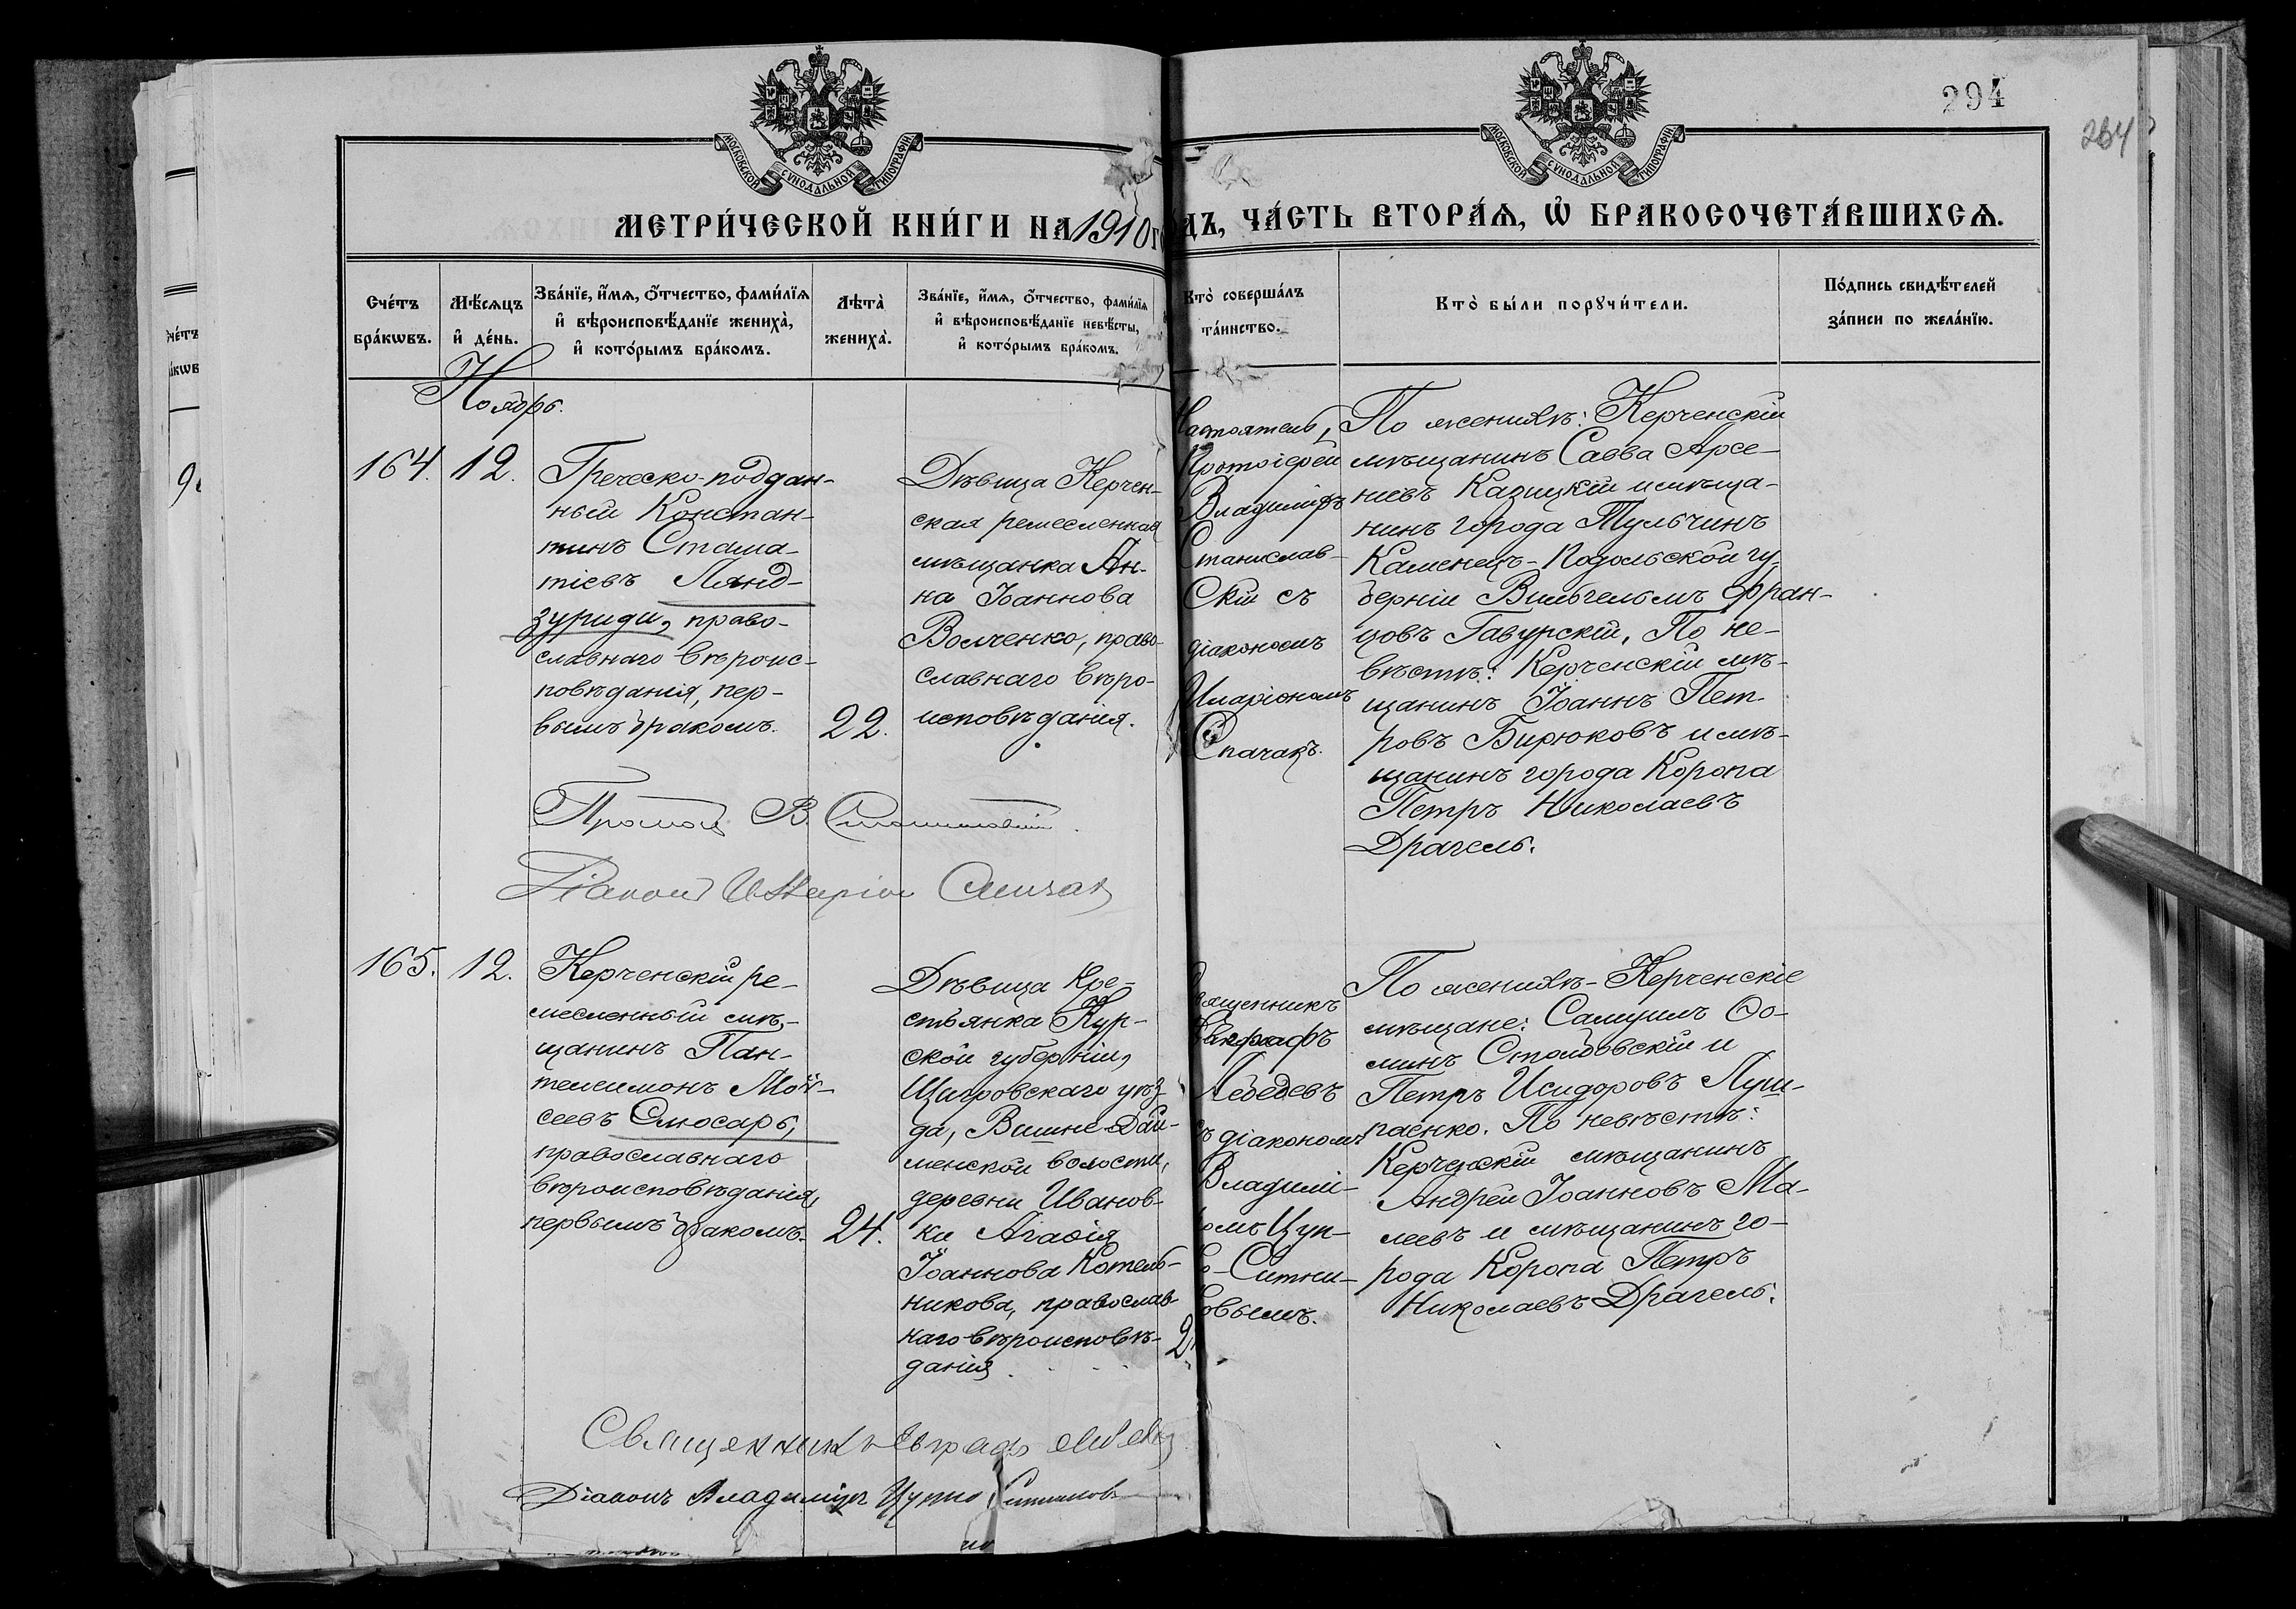 294
264
МОСКОВСКОЙ СѴНОДАЛЬНОЙ ТИПОГРАФІИ
МОСКОВСКОЙ СѴНОДАЛЬНОЙ ТИПОГРАФІИ
МЕТРИ́ЧЕСКОЙ КНИ́ГИ НА 1910 ГОДЪ, ЧА́СТЬ ВТОРА́Ѧ, Ѡ҆ БРАКОСОЧЕТА́ВШИХСѦ.
Сче́тъ
бра́кѡвъ.
Мѣ́сѧцъ
и҆ де́нь.
Зва́нїе, и҆́мѧ, ѻ҆́тчество, фами́лїѧ
и҆ вѣроисповѣ́данїе жениха̀,
и҆ кото́рымъ бра́комъ.
Лѣта̀
жениха̀.
Зва́нїе, и҆́мѧ, ѻ҆́тчество, фами́лїѧ
и҆ вѣроисповѣ́данїе невѣ́сты,
и҆ кото́рымъ бра́комъ.
Кто̀ соверша́лъ
та́инство.
Кто̀ бы́ли порꙋчи́тели.
По́дпись свидѣ́телей
за́писи по жела́нїю.
Ноябрь.
164.
12.
Греческо-поддан-
ный Констан-
тинъ Стама-
тіевъ Лянд-
зуриди, право-
славнаго вѣроис-
повѣданія, пер-
вымъ бракомъ.
22.
Дѣвица Керчен-
ская ремесленная
мѣщанка Ан-
на Іоаннова
Волченко, право-
славнаго вѣро-
исповѣданія.
Настоятель,
Протоіерей
Владиміръ
Станислав-
скій съ
діакономъ
Иларіономъ
Спачакъ.
По женихѣ: Керченскій
мѣщанинъ Савва Арсе-
ніевъ Казицкій и мѣща-
нинъ города Тульчинъ
Каменецъ-Подольской гу-
берніи Вильгельмъ Фран-
цовъ Гавурскій, По не-
вѣстѣ: Керченскій мѣ-
щанинъ Іоаннъ Пет-
ровъ Бирюковъ и мѣ-
щанинъ города Коропа
Петръ Николаевъ
Драгель.
165.
12.
Керченскій ре-
месленный мѣ-
щанинъ Пан-
телеимонъ Мои-
сеевъ Слюсарь,
православнаго
вѣроисповѣданія,
первымъ бракомъ.
24.
Дѣвица Кре-
стьянка Кур-
ской губерніи,
Щигровскаго уѣз-
да, Вышне-Дай-
менской волости,
деревни Иванов-
ки Агафія
Іоаннова Котель-
никова, православ-
наго вѣроисповѣ-
данія
2
Священникъ
Евграфъ
Лебедевъ
съ діакономъ
Владимі-
ромъ Цуп-
ко-Ситни-
ковымъ.
По женихѣ-Керченскіе
мѣщане: Самуилъ Ѳо-
минъ Столбовскій и
Петръ Исидоровъ Луш-
паенко. По невѣстѣ:
Керченскій мѣщанинъ
Андрей Іоанновъ Ма-
леевъ и мѣщанинъ го-
рода Коропа Петръ
Николаевъ Драгель.
Священникъ Евграфъ
Діаконъ Владиміръ Цупко Ситниковъ